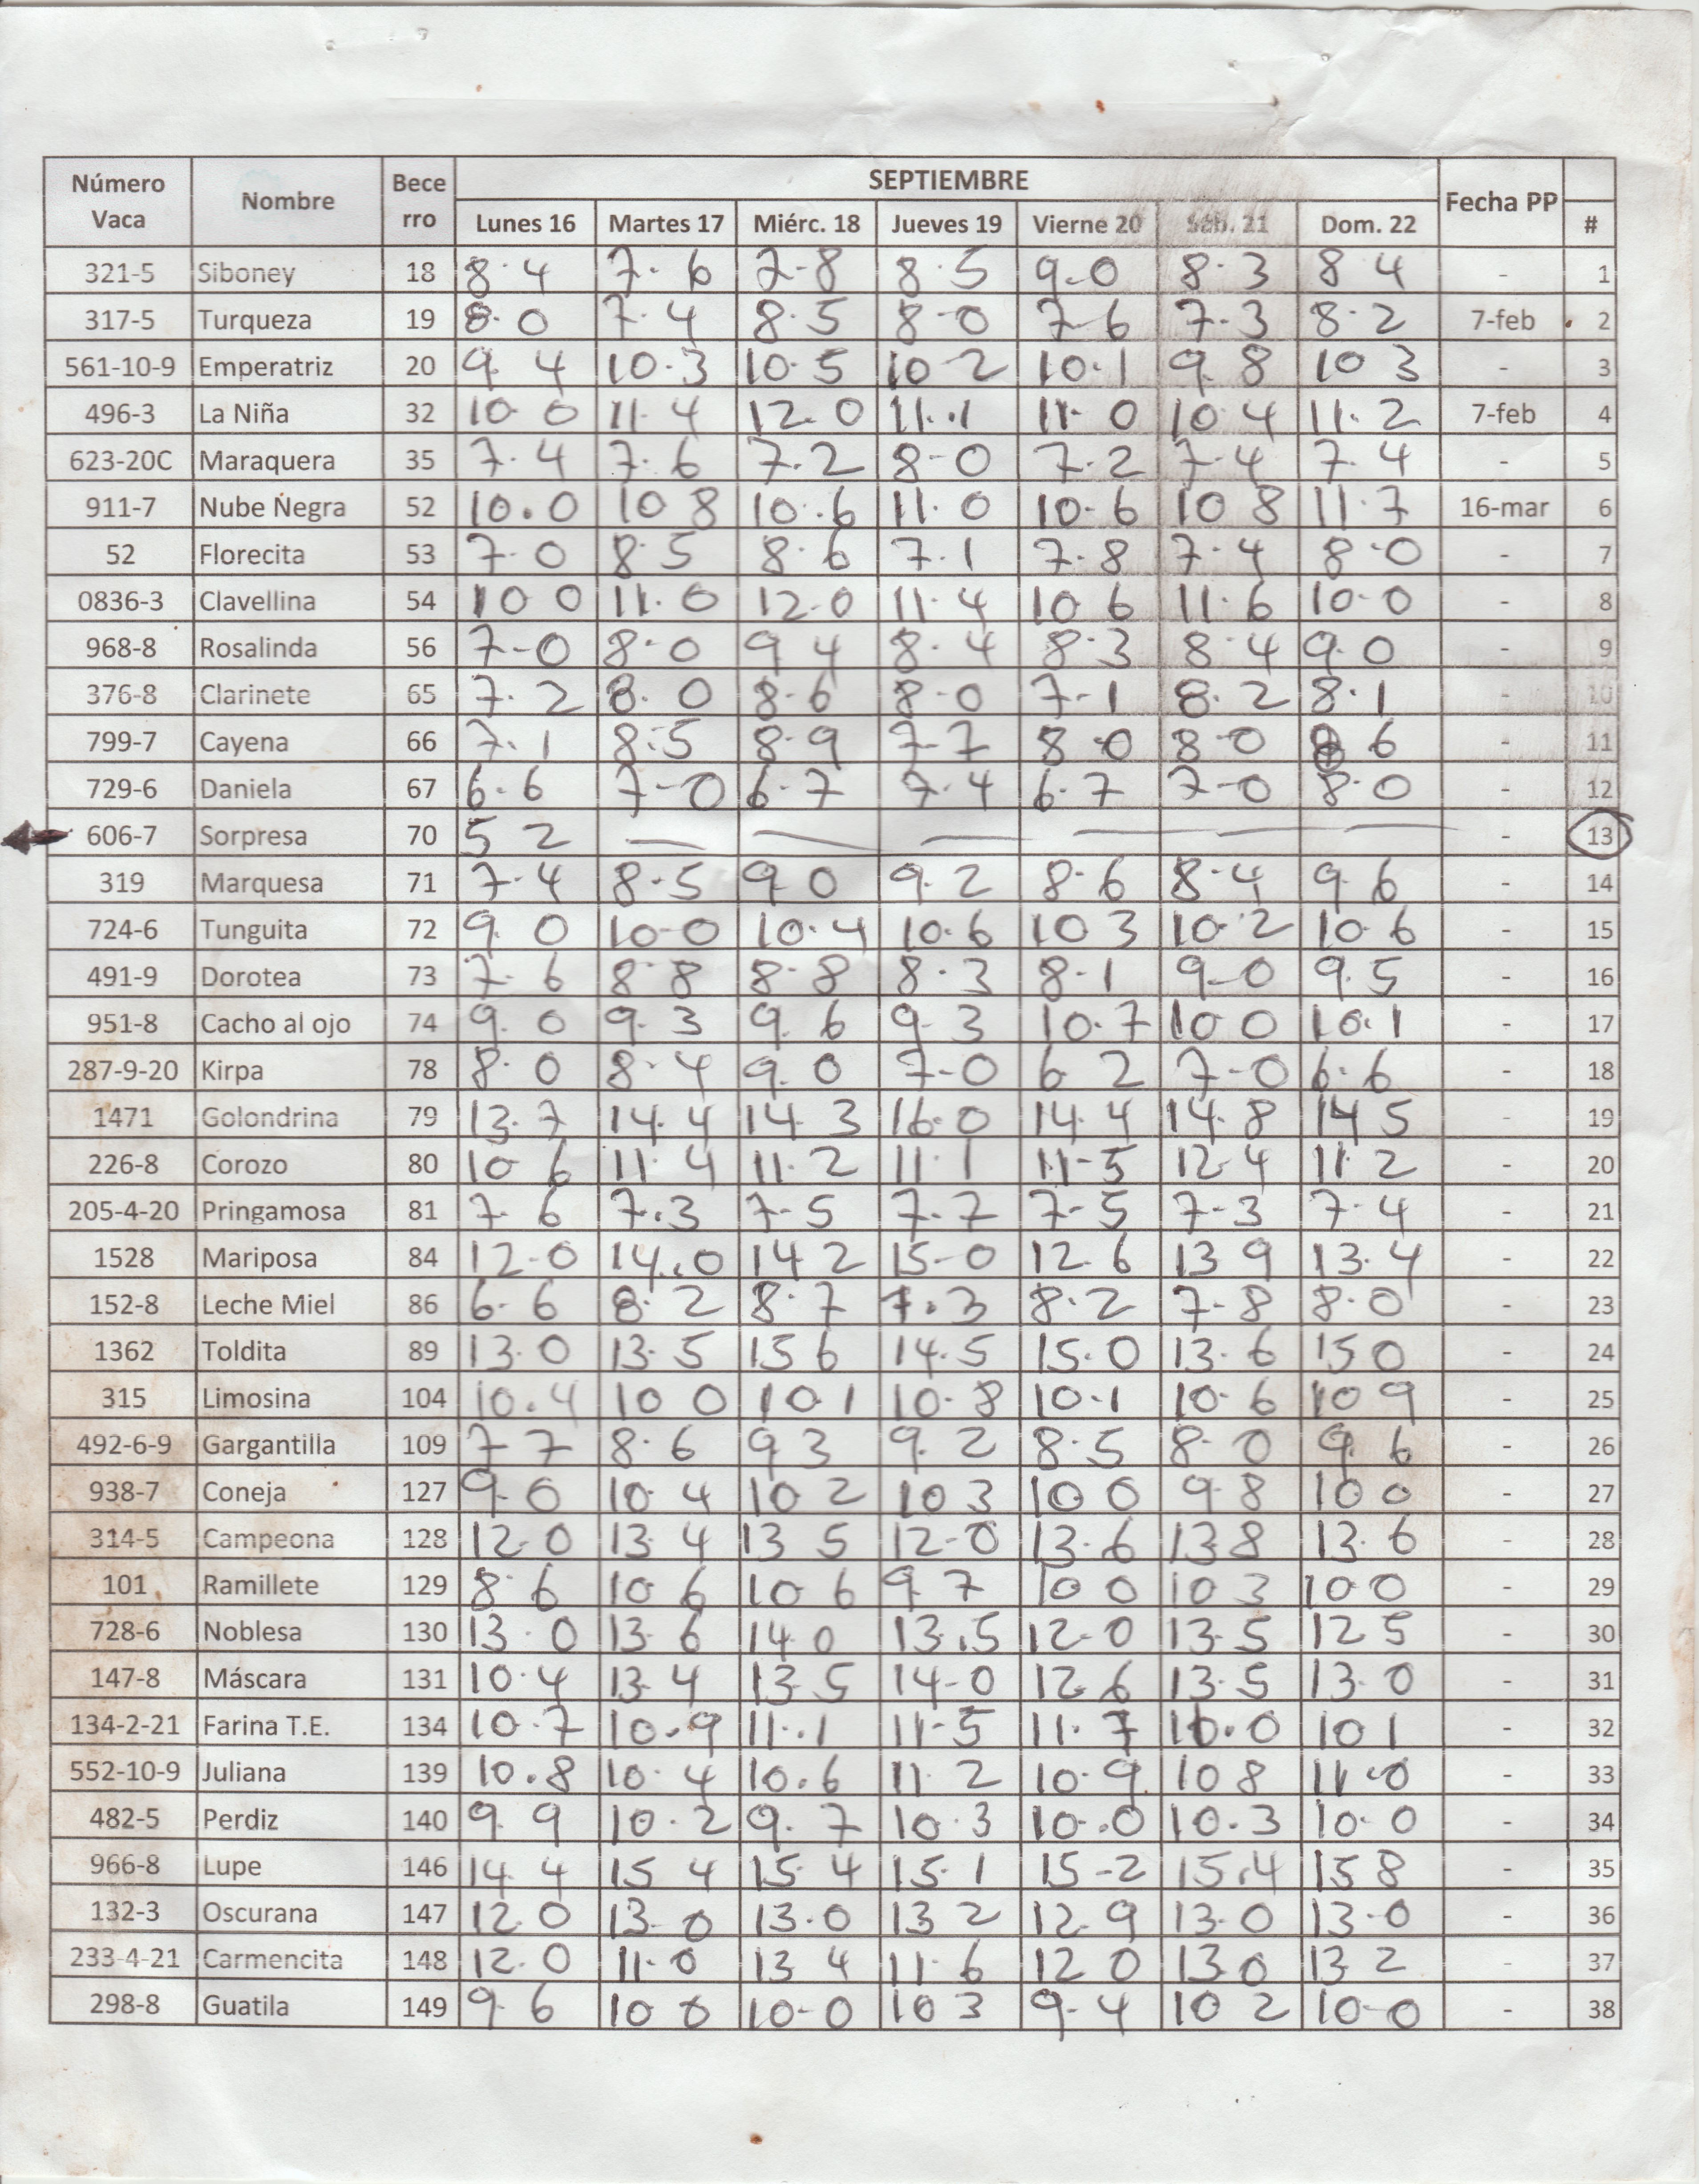 Número Vaca Nombre Becerro SEPTIEMBRE Fecha PP #
Lunes 16 Martes 17 Miérc. 18 Jueves 19 Vierne 20 Sáb. 21 Dom. 22
321-5 Siboney 18 8.4 7.6 7-8 8.5 9-0 8.3 8 4 - 1
317-5 Turqueza 19 8.0 7.4 8.5 8-0 7-6 7-3 8.2 7-feb 2
561-10-9 Emperatriz 20 9.4 10.3 10.5 10 2 10.1 9.8 10 3 - 3
496-3 La Niña 32 10.0 11.4 12.0 11.1 11.0 10 4 11.2 7-feb 4
623-20C Maraquera 35 7.4 7.6 7.2 8-0 7.2 7-4 7.4 - 5
911-7 Nube Negra 52 10.0 10 8 10.6 11.0 10-6 10 8 11.7 16-mar 6
52 Florecita 53 7-0 8.5 8.6 7.1 7-8 7.4 8.0 - 7
0836-3 Clavellina 54 10 0 11.0 12.0 11.4 10 6 11.6 10-0 - 8
968-8 Rosalinda 56 7-0 8.0 9 4 8.4 8.3 8.4 9.0 - 9
376-8 Clarinete 65 7.2 8.0 8-6 8-0 7-1 8.2 8.1 - 10
799-7 Cayena 66 7.1 8.5 8.9 7-7 8.0 8.0 6 - 11
729-6 Daniela 67 6.6 7-0 6-7 7.4 6.7 7-0 8.0 - 12
606-7 Sorpresa 70 5 2 — — — — — — - 13
319 Marquesa 71 7.4 8.5 9 0 9.2 8.6 8.4 9.6 - 14
724-6 Tunguita 72 9.0 10-0 10.4 10.6 10 3 10.2 10.6 - 15
491-9 Dorotea 73 7-6 8.8 8.8 8.3 8.1 9-0 9.5 - 16
951-8 Cacho al ojo 74 9.0 9.3 9.6 9-3 10.7 10 0 10.1 - 17
287-9-20 Kirpa 78 8.0 8.4 9.0 7-0 6 2 7-0 6.6 - 18
1471 Golondrina 79 13.7 14.4 14.3 16.0 14.4 14.8 14 5 - 19
226-8 Corozo 80 10-6 11.4 11.2 11.1 11-5 12.4 11.2 - 20
205-4-20 Pringamosa 81 7.6 7.3 7-5 7-7 7-5 7-3 7.4 - 21
1528 Mariposa 84 12-0 14.0 14 2 15-0 12.6 13 9 13.4 - 22
152-8 Leche Miel 86 6-6 8.2 8.7 7.3 8.2 7-8 8.0 - 23
1362 Toldita 89 13.0 13.5 15 6 14.5 15.0 13.6 15 0 - 24
315 Limosina 104 10.4 10 0 10.1 10-8 10.1 10.6 10 9 - 25
492-6-9 Gargantilla 109 7 7 8.6 9 3 9.2 8.5 8.0 9.6 - 26
938-7 Coneja 127 9-0 10.4 10 2 10 3 10 0 9 8 10 0 - 27
314-5 Campeona 128 12.0 13.4 13 5 12-0 13.6 13 8 13.6 - 28
101 Ramillete 129 8.6 10 6 10 6 9 7 10 0 10 3 10 0 - 29
728-6 Noblesa 130 13.0 13.6 14.0 13.5 12-0 13-5 12 5 - 30
147-8 Máscara 131 10.4 13-4 13.5 14-0 12.6 13.5 13.0 - 31
134-2-21 Farina T.E. 134 10.7 10.9 11.1 11-5 11.7 10.0 10 1 - 32
552-10-9 Juliana 139 10.8 10.4 10.6 11.2 10.9 10 8 11.0 - 33
482-5 Perdiz 140 9.9 10.2 9.7 10.3 10.0 10.3 10.0 - 34
966-8 Lupe 146 14.4 15 4 15.4 15.1 15-2 15.4 15 8 - 35
132-3 Oscurana 147 12.0 13-0 13.0 13 2 12.9 13.0 13-0 - 36
233-4-21 Carmencita 148 12.0 11-0 13 4 11.6 12 0 13 0 13 2 - 37
298-8 Guatila 149 9-6 10 0 10-0 10 3 9-4 10 2 10-0 - 38